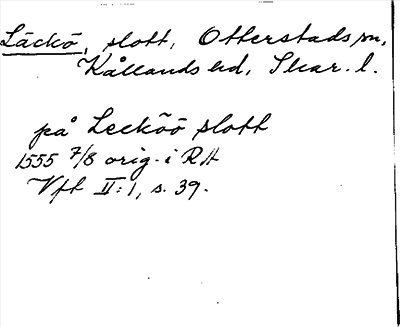 Läckö, slott, Otterstads sn,
Kållands hd, Skar. l.
på Lecköö slott
1555 7/8 orig. i RA
Vft II:1, s. 39.